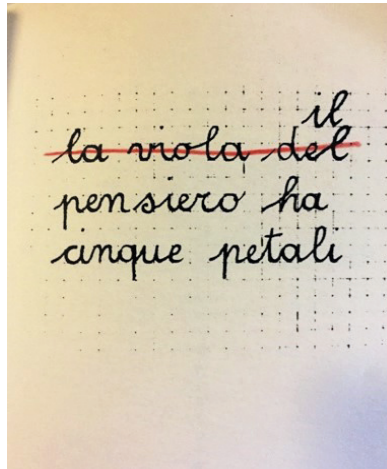 il
la viola del
pensiero ha
cinque petali